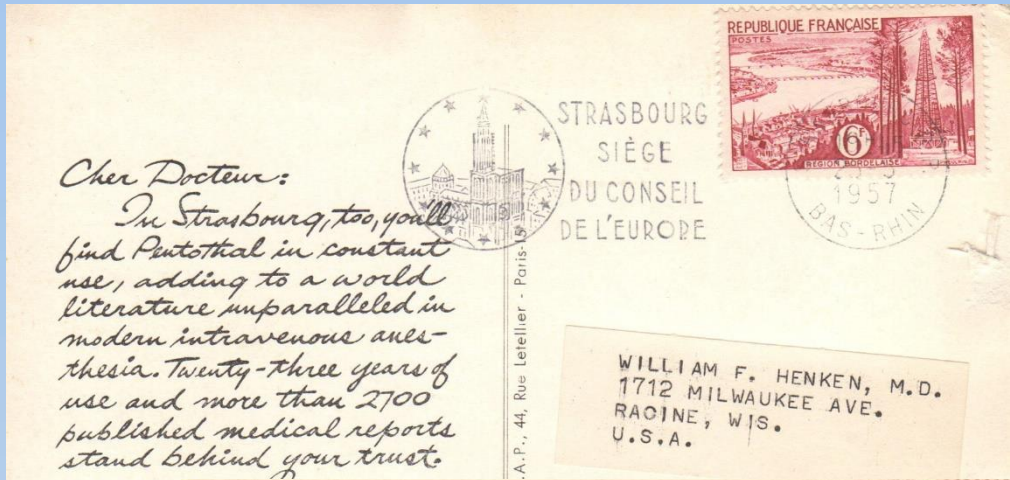 REPUBLIQUE FRANÇAISE
POSTES
6F
REGION BORDELAISE
STRASBOURG
SIÈGE
DU CONSEIL
DE L'EUROPE
1957
BAS-RHIN
Cher Docteur:
In Strasbourg, too, you'll
find Pentothal in constant
use, adding to a world
literature unparalleled in
modern intravenous anes-
thesia. Twenty-three years of
use and more than 2700
published medical reports
stand behind your trust.
.A.P., 44, Rue Letellier - Paris-15
WILLIAM F. HENKEN, M.D.
1712 MILWAUKEE AVE.
RACINE, WIS.
U.S.A.